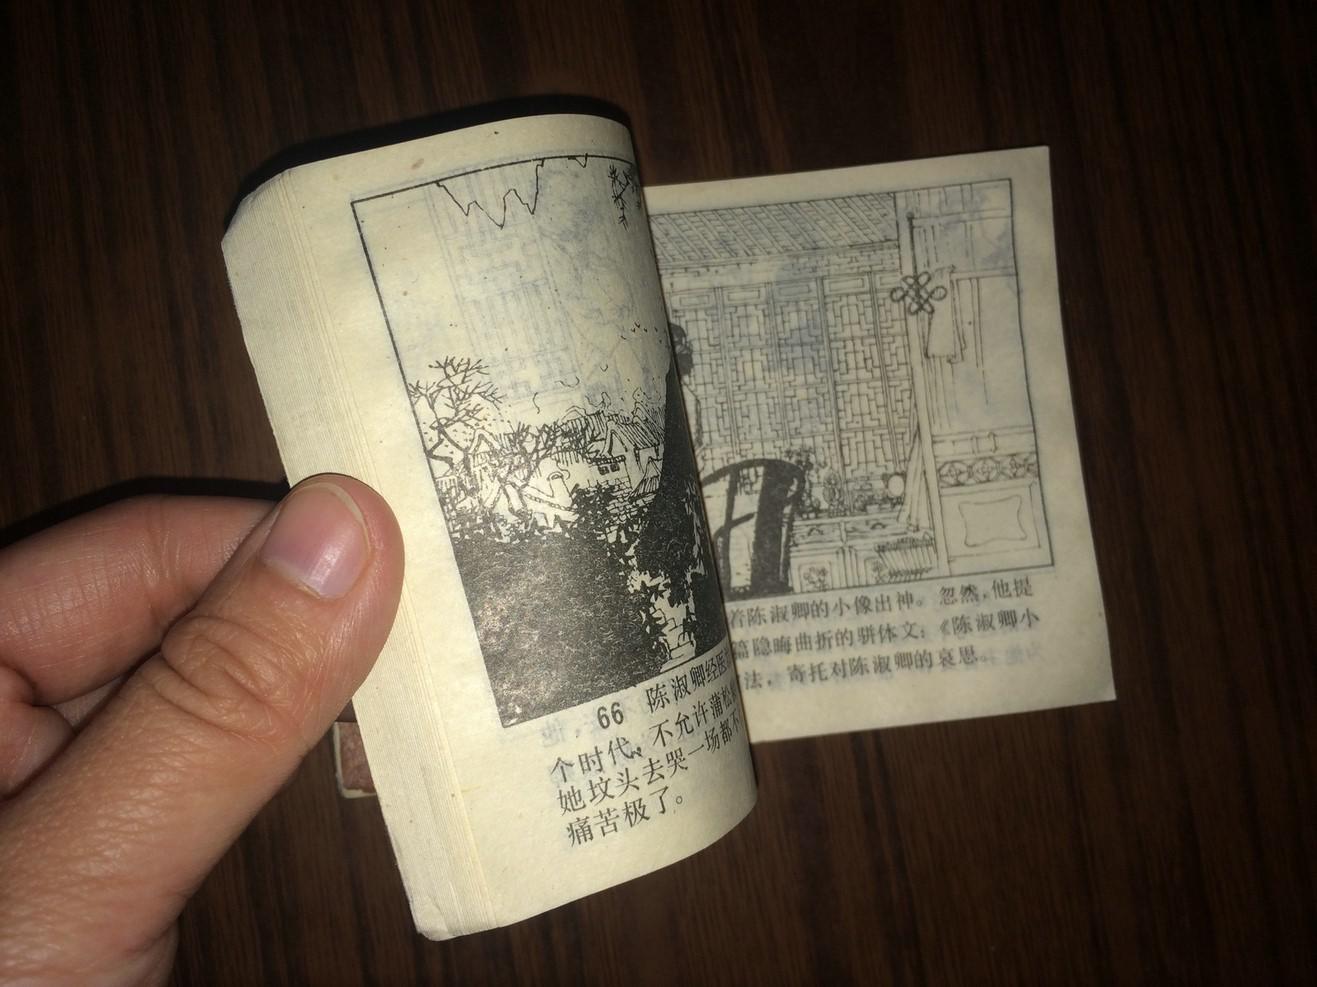 66 陈淑卿经医
个时代，不允许蒲松
她坟头去哭一场都不
痛苦极了。
着陈淑卿的小像出神。忽然，他提
篇隐晦曲折的骈体文：《陈淑卿小
法，寄托对陈淑卿的哀思。